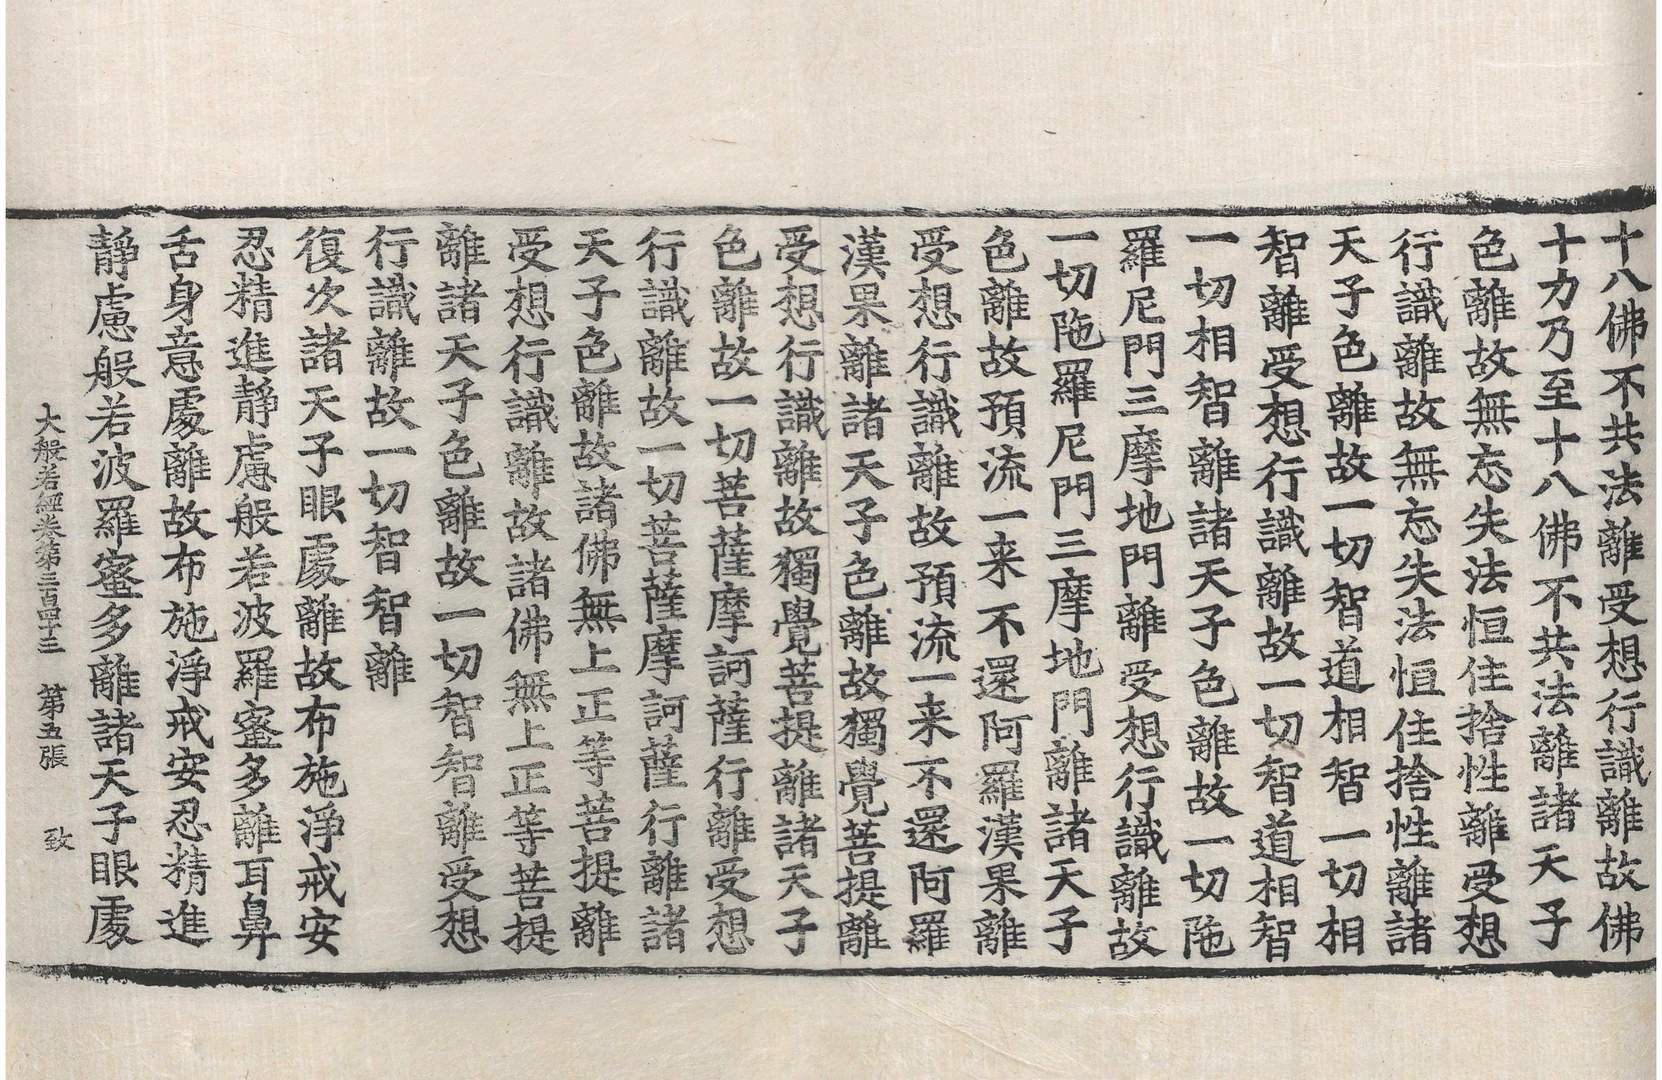 十八佛不共法離受想行識離故佛
十力乃至十八佛不共法離諸天子
色離故無忘失法恒住捨性離受想
行識離故無忘失法恒住捨性離諸
天子色離故一切智道相智一切相
智離受想行識離故一切智道相智
一切相智離諸天子色離故一切陁
羅尼門三摩地門離受想行識離故
一切陁羅尼門三摩地門離諸天子
色離故預流一来不還阿羅漢果離
受想行識離故預流一来不還阿羅
漢果離諸天子色離故獨覺菩提離
受想行識離故獨覺菩提離諸天子
色離故一切菩薩摩訶薩行離受想
行識離故一切菩薩摩訶薩行離諸
天子色離故諸佛無上正等菩提離
受想行識離故諸佛無上正等菩提
離諸天子色離故一切智智離受想
行識離故一切智智離
復次諸天子眼處離故布施淨戒安
忍精進靜慮般若波羅蜜多離耳鼻
舌身意處離故布施淨戒安忍精進
靜慮般若波羅蜜多離諸天子眼處
大般若經卷第三百四十三 第五張 致